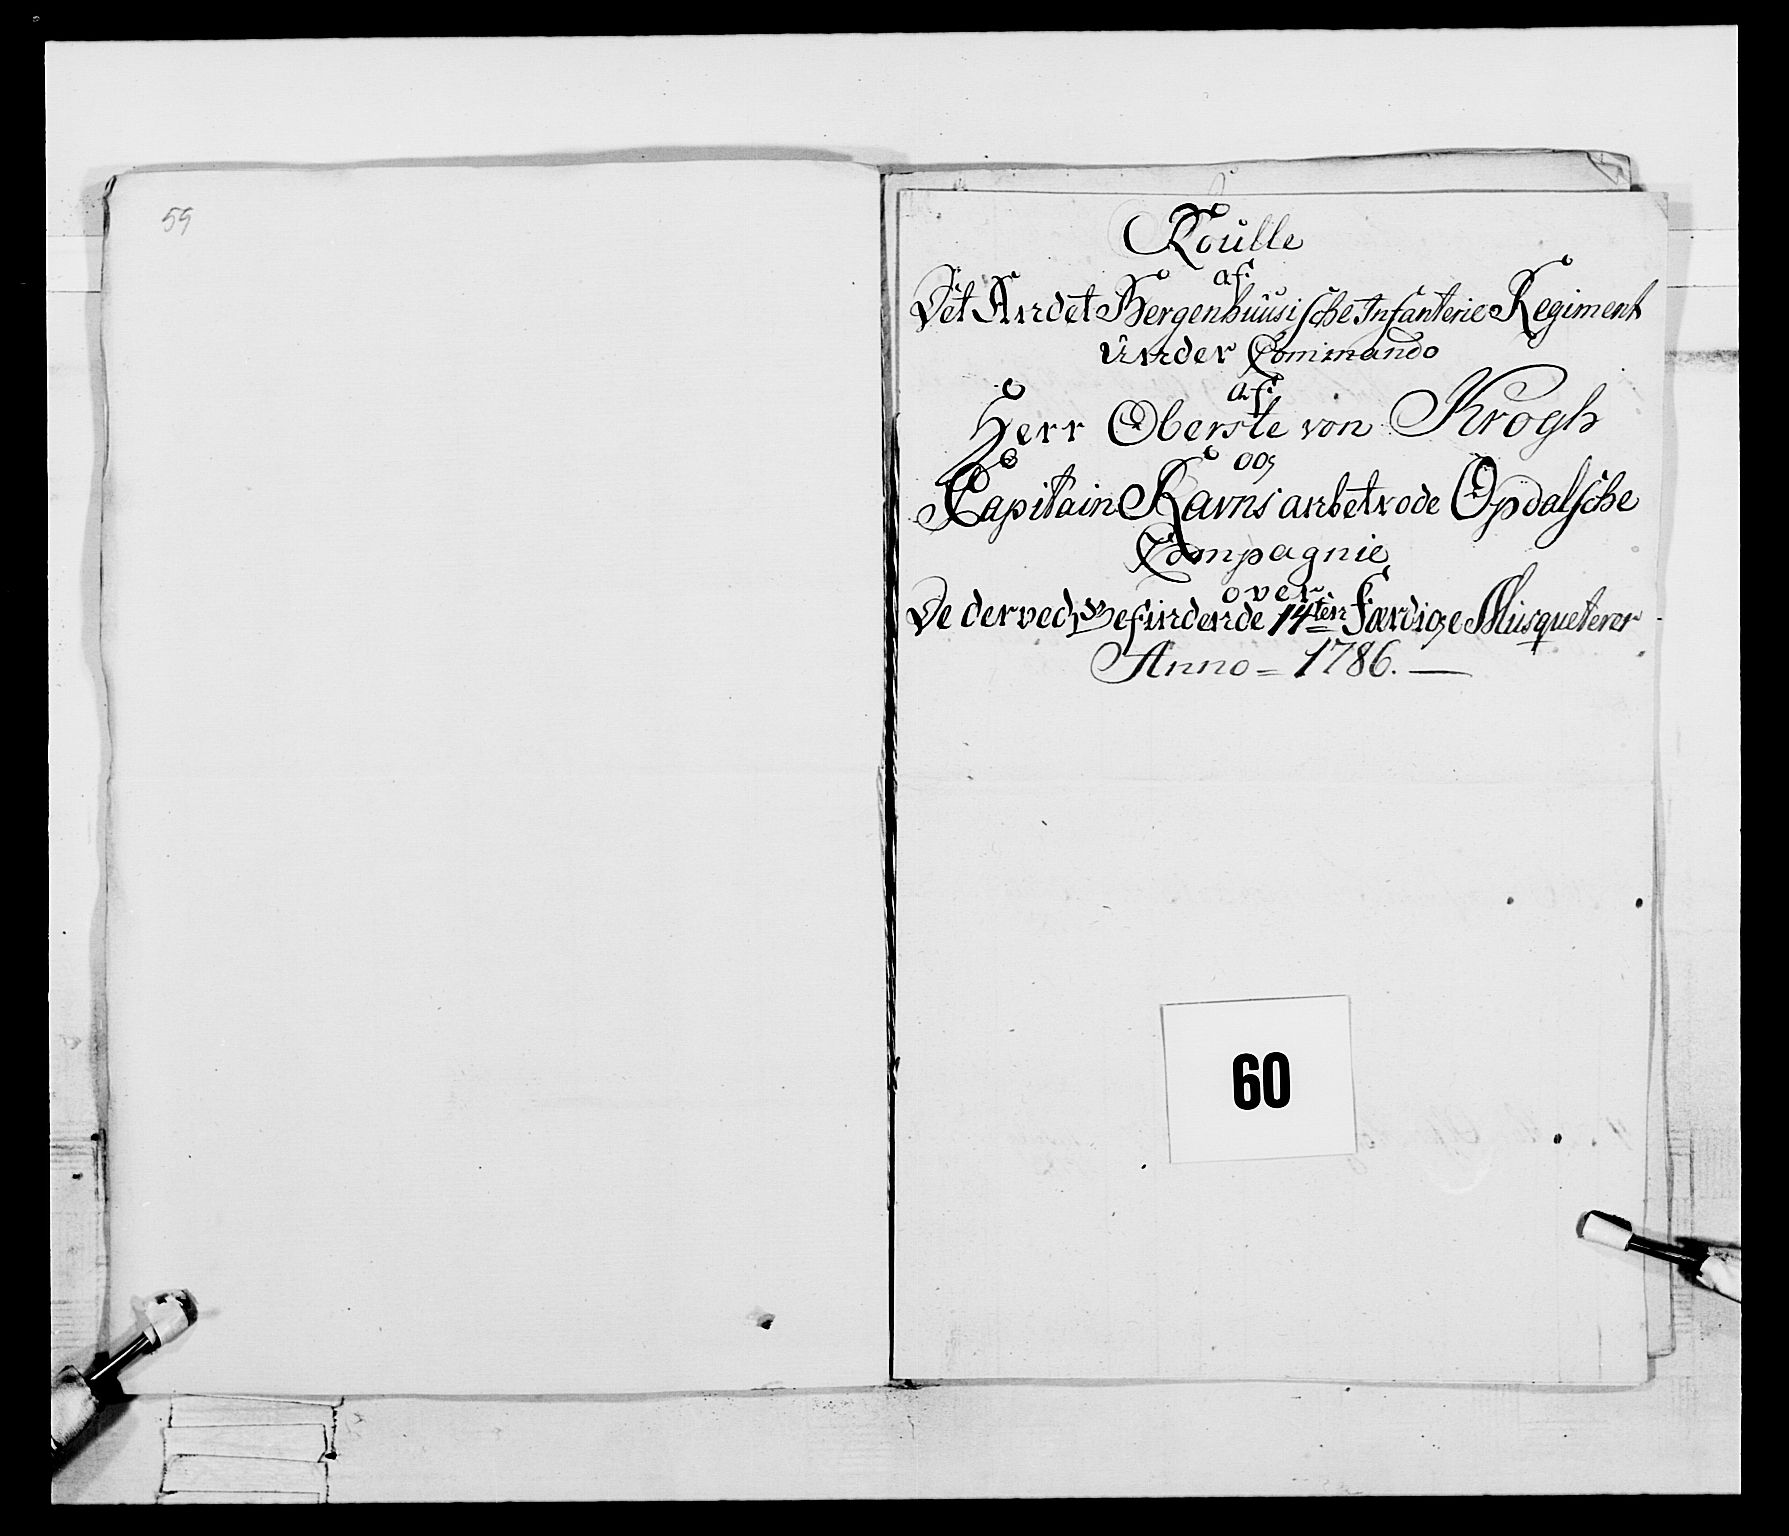 59
Roülle
af
Det Andet Bergenhüüsische Infanterie Regiment
ünder Commando
af
Herr Oberste von Krogh
og
Capitain Ravns anbetrode Opdalsche
Compagnie
over
De derved Befindende 14ten Færdige Musqueterer
Anno = 1786. —
60